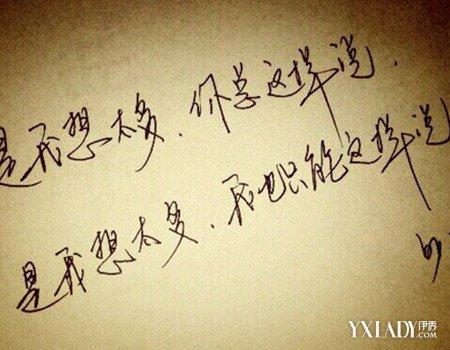 是我想太多，你总这样说．
是我想太多，我也只能这样说
YXLADY.COM伊秀